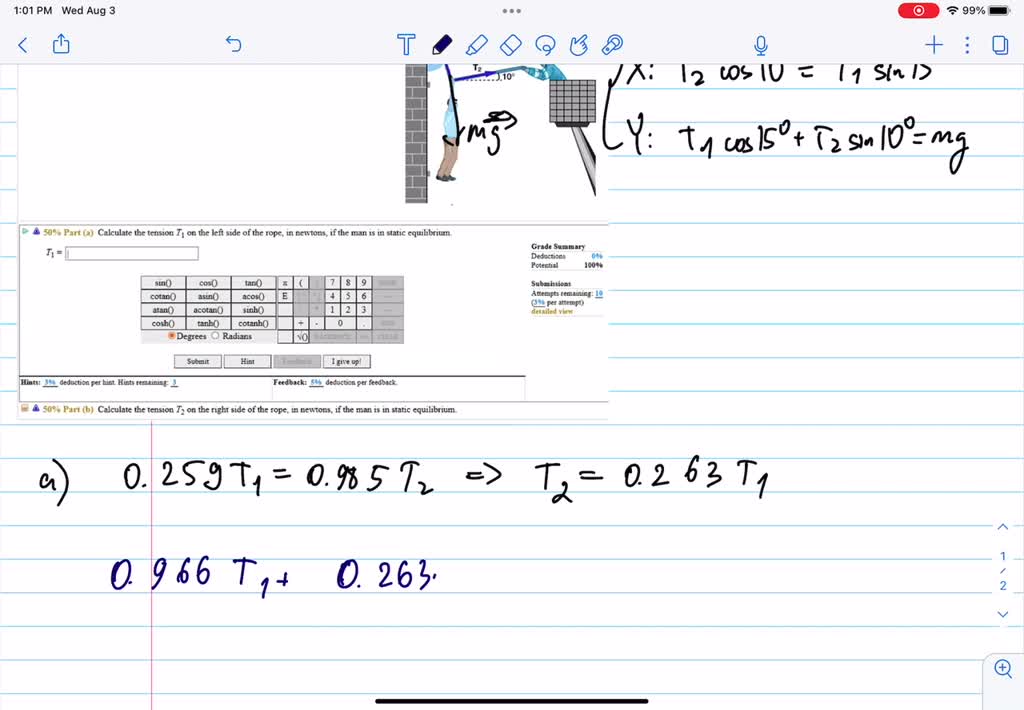 1:01 PM Wed Aug 3
99%
T₂
10°
X: T₂ cos 10 = T₁ sin 15
mg
Y: T₁ cos 15° + T₂ sin 10° = mg
50% Part (a) Calculate the tension T₁ on the left side of the rope, in newtons, if the man is in static equilibrium.
T₁ =
Grade Summary
Deductions 0%
Potential 100%
Submissions
Attempts remaining: 10
(3% per attempt)
detailed view
sin() cos() tan() π ( 7 8 9
cotan() asin() acos() E 4 5 6
atan() acotan() sinh() 1 2 3
cosh() tanh() cotanh() + - 0 .
Degrees Radians √()
Submit Hint Feedback I give up!
Hints: 3% deduction per hint. Hints remaining: 3 Feedback: 5% deduction per feedback.
50% Part (b) Calculate the tension T₂ on the right side of the rope, in newtons, if the man is in static equilibrium.
a) 0.259 T₁ = 0.985 T₂ => T₂ = 0.263 T₁
0.966 T₁ + 0.263·
1
/
2